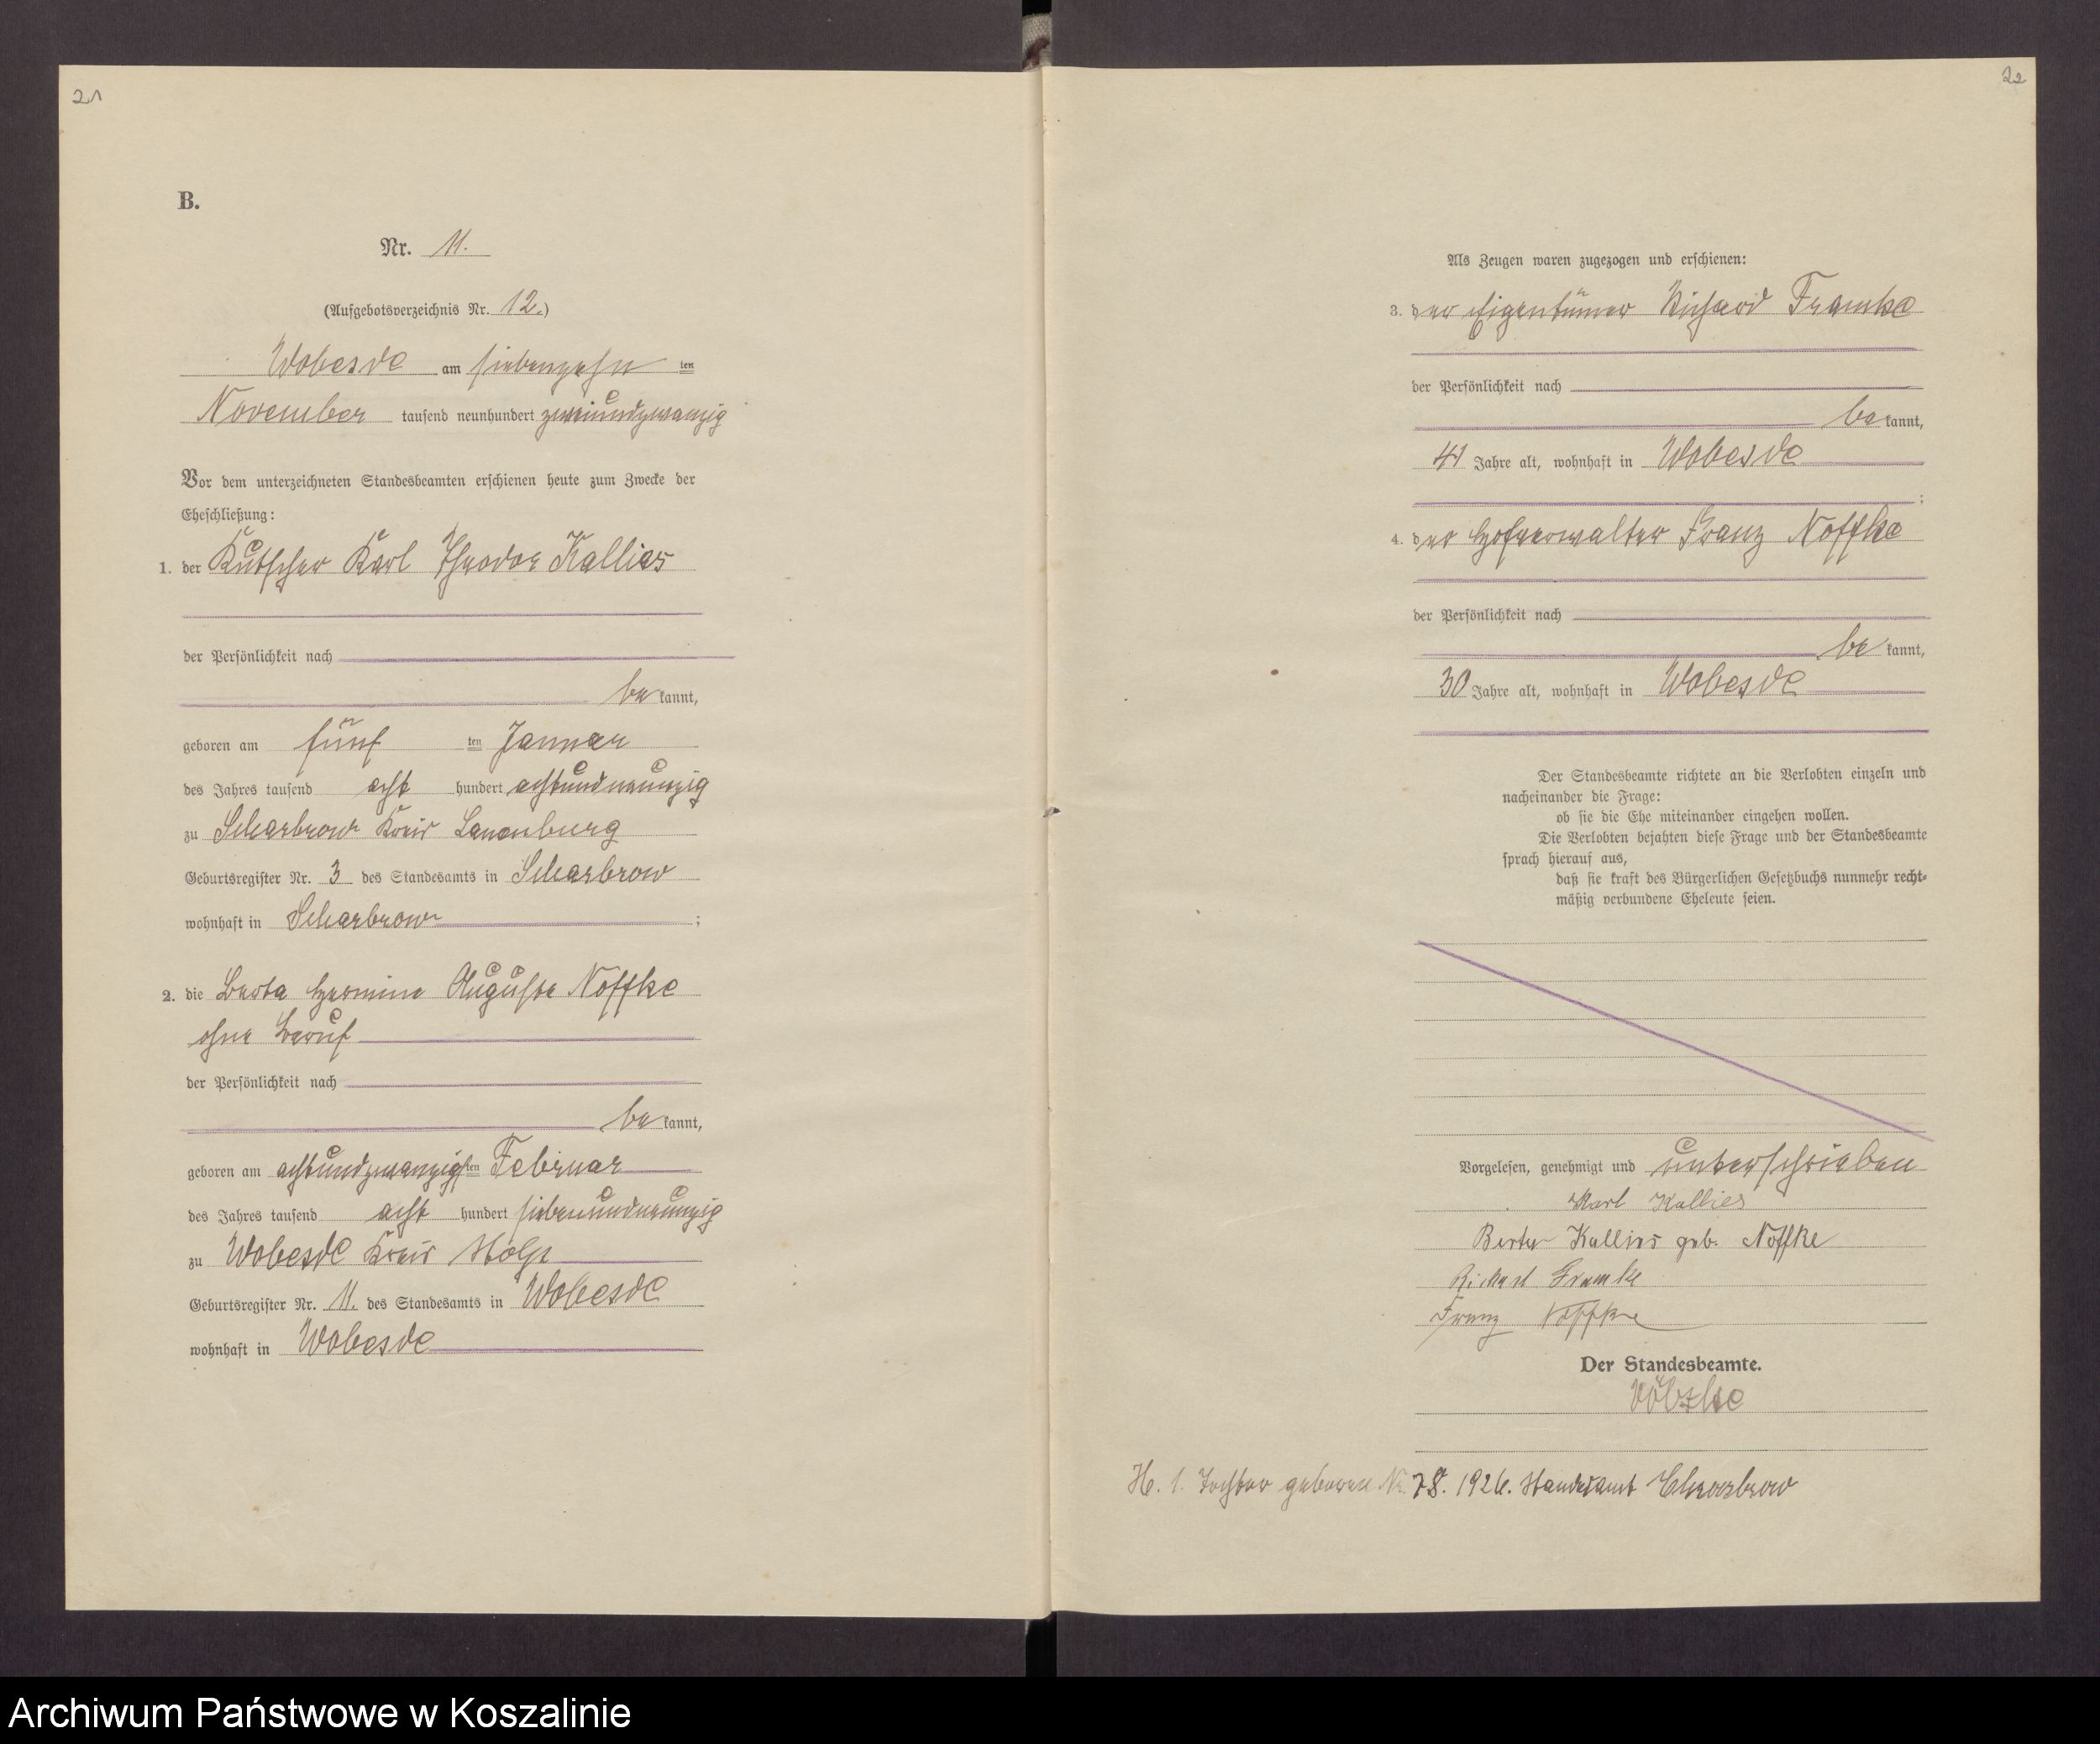 21
B.
Nr. 11.
(Aufgebotsverzeichnis Nr. 12.)
Wobesde am siebenzehn ten
November tausend neunhundert zweiundzwanzig
Vor dem unterzeichneten Standesbeamten erschienen heute zum Zwecke der
Eheschließung:
1. der Kutscher Karl Theodor Kallies
der Persönlichkeit nach
be kannt,
geboren am fünf ten Januar
des Jahres tausend acht hundert achtundneunzig
zu Scharbrow Kreis Lauenburg
Geburtsregister Nr. 3 des Standesamts in Scharbrow
wohnhaft in Scharbrow ;
2. die Berta Hermine Auguste Noffke
ohne Beruf
der Persönlichkeit nach
be kannt,
geboren am achtundzwanzigsten Februar
des Jahres tausend acht hundert siebenundneunzig
zu Wobesde Kreis Stolp
Geburtsregister Nr. 11. des Standesamts in Wobesde
wohnhaft in Wobesde
22
Als Zeugen waren zugezogen und erschienen:
3. der Eigentümer Richard Framke
der Persönlichkeit nach
be kannt,
41 Jahre alt, wohnhaft in Wobesde
;
4. der Hofverwalter Franz Noffke
der Persönlichkeit nach
be kannt,
30 Jahre alt, wohnhaft in Wobesde
Der Standesbeamte richtete an die Verlobten einzeln und
nacheinander die Frage:
ob sie die Ehe miteinander eingehen wollen.
Die Verlobten bejahten diese Frage und der Standesbeamte
sprach hierauf aus,
daß sie kraft des Bürgerlichen Gesetzbuchs nunmehr recht-
mäßig verbundene Eheleute seien.
Vorgelesen, genehmigt und unterschrieben
Karl Kallies
Berta Kallies geb. Noffke
Richard Framke
Franz Noffke
Der Standesbeamte.
H. 1. Tochter geboren Nr. 78. 1926. Standesamt
Archiwum Państwowe w Koszalinie